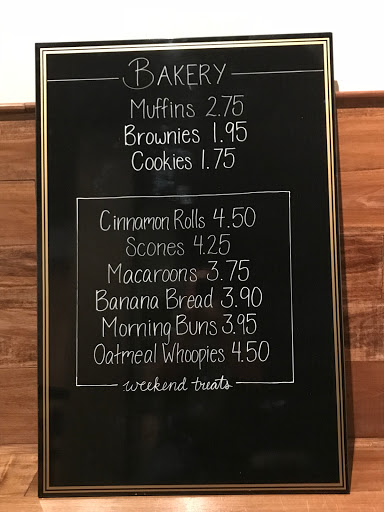 BAKERY
Muffins 2.75
Brownies 1.95
Cookies 1.75
Cinnamon Rolls 4.50
Scones 4.25
Macaroons 3.75
Banana Bread 3.90
Morning Buns 3.95
Oatmeal Whoopies 4.50
weekend treats